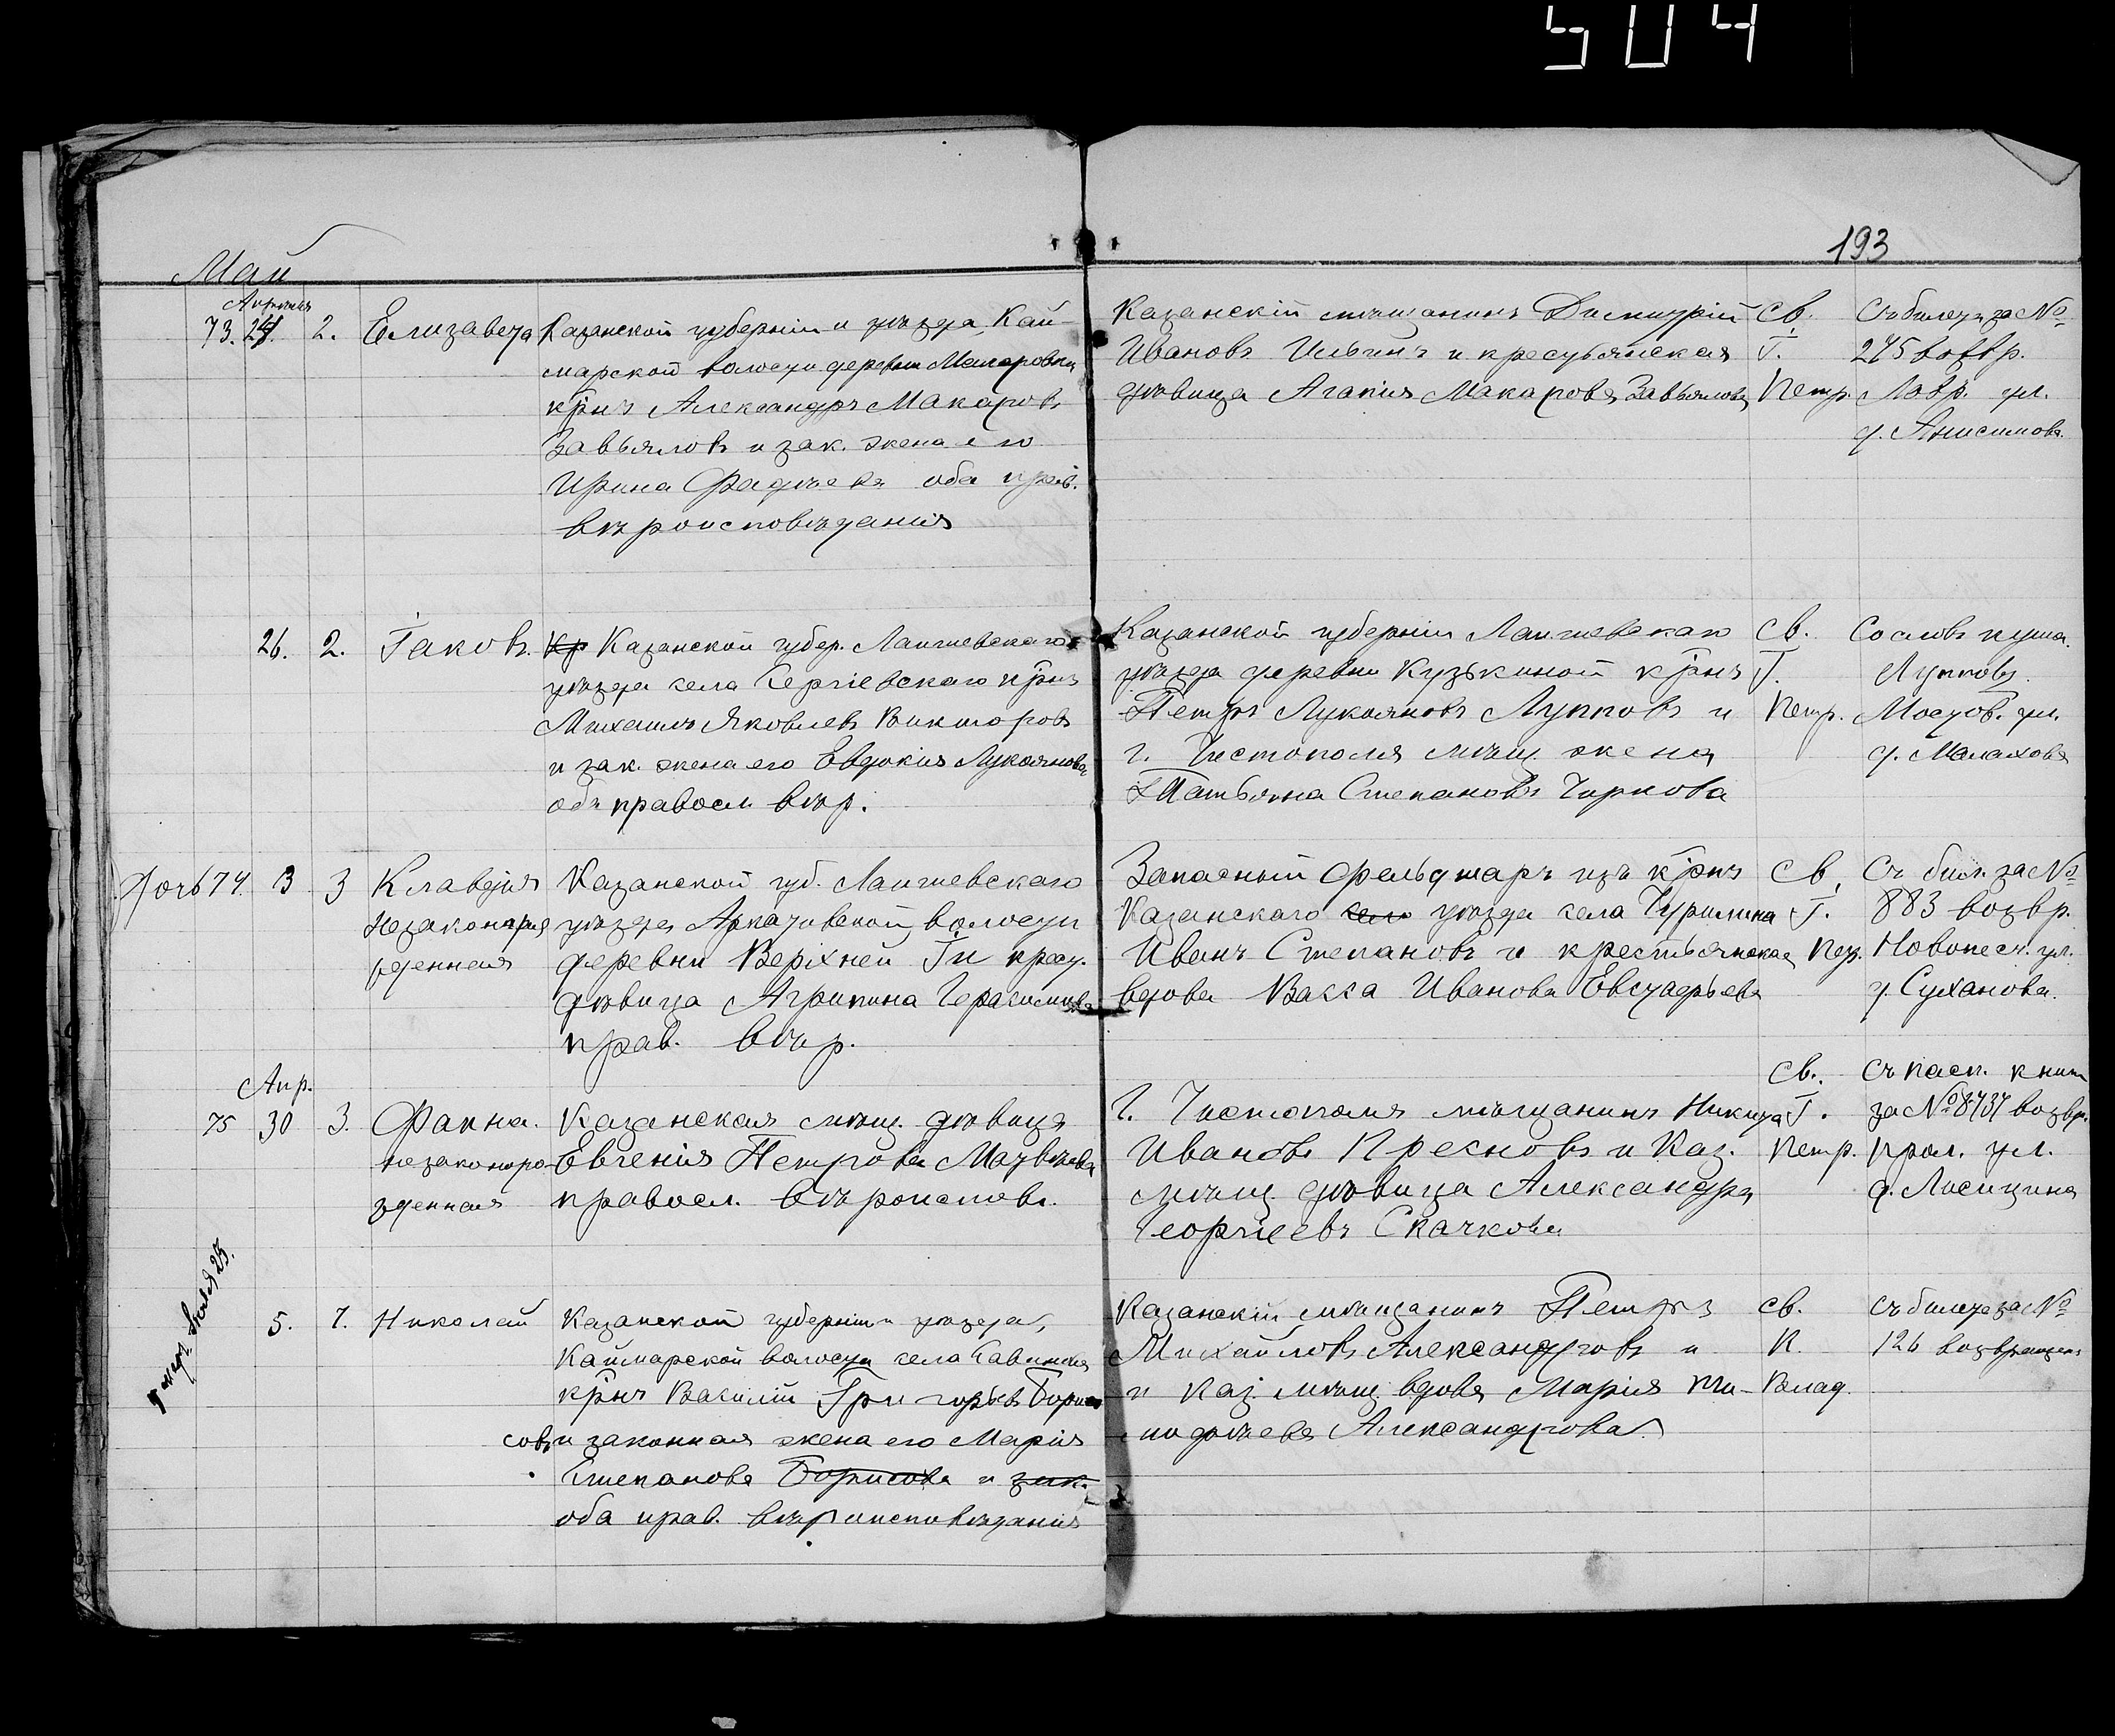 504
193
Май
Апреля
73. 24. 2. Елизавета
Казанской губерніи и уѣзда Кай-
марской волости деревни Макаровки
кр̃нъ Александръ Макаровъ
Завьяловъ и зак. жена его
Ирина Фадѣева оба прав.
вѣроисповѣданія
Казанскій мѣщанинъ Димитрій
Ивановъ Ильинъ и крестьянская
дѣвица Агапія Макарова Завьялова
Св.
Г.
Петр.
Съ билета за №
275 возвр.
Лавр. ул.
д. Анисимова.
26. 2. Іаковъ.
Кр Казанской губер. Лаишевскаго
уѣзда села Сергіевскаго кр̃нъ
Михаилъ Яковлевъ Викторовъ
и зак. жена его Евдокія Лукоянова
оба правосл. вѣр.
Казанской губерніи Лаишевскаго
уѣзда деревни Кузькиной кр̃нъ
Петръ Лукояновъ Лупповъ и
г. Чистополя мѣщ. жена
Татьяна Степановъ Чиркова
Св.
Г.
Петр.
Со словъ кума.
Луппову.
Мостов. ул.
д. Малахова
Дочь 74. 3 3
Клавдія
Незаконоро
жденная
Казанской губ. Лаишевскаго
уѣзда Арказовской волости
деревни Верхней Ги крест.
дѣвица Агрипина Герасимова
прав. вѣр.
Запасный фельдшаръ изъ кр̃нъ
Казанскаго село уѣзда села Чурилина
Иванъ Степановъ и крестьянская
вдова Васса Иванова Евстафьева
Св.
Г.
Пет.
Съ бил. за №
883 возвр.
Новопесч. ул.
д. Суханова.
Апр.
75 30 3. Фаина.
незаконоро-
жденная
Казанская мѣщ. дѣвица
Евгенія Петрова Матвѣева
правосл. вѣроисповѣ.
г. Чистополя мѣщанинъ Никита
Ивановъ Пресновъ и Каз.
мѣщ. дѣвица Александра
Георгіевъ Скачкова
Св.
Г.
Петр.
Съ пасп. книж
за № 8737 возвр.
прол. ул.
д. Лисицина
5. 7. Николай
Казанской губерніи и уѣзда,
Каймарской волости села Савинова
кр̃нъ Василій Григорьевъ Бори
совъ и законная жена его Марія
Степанова Борисова и зак.
оба прав. вѣроисповѣданія
Казанскій мѣщанинъ Петръ
Михайловъ Александровъ и
и Каз. мѣщ. вдова Марія Ти-
моѳѣева Александрова
Св.
К.
Влад.
Съ билета за №
126 возвращенъ